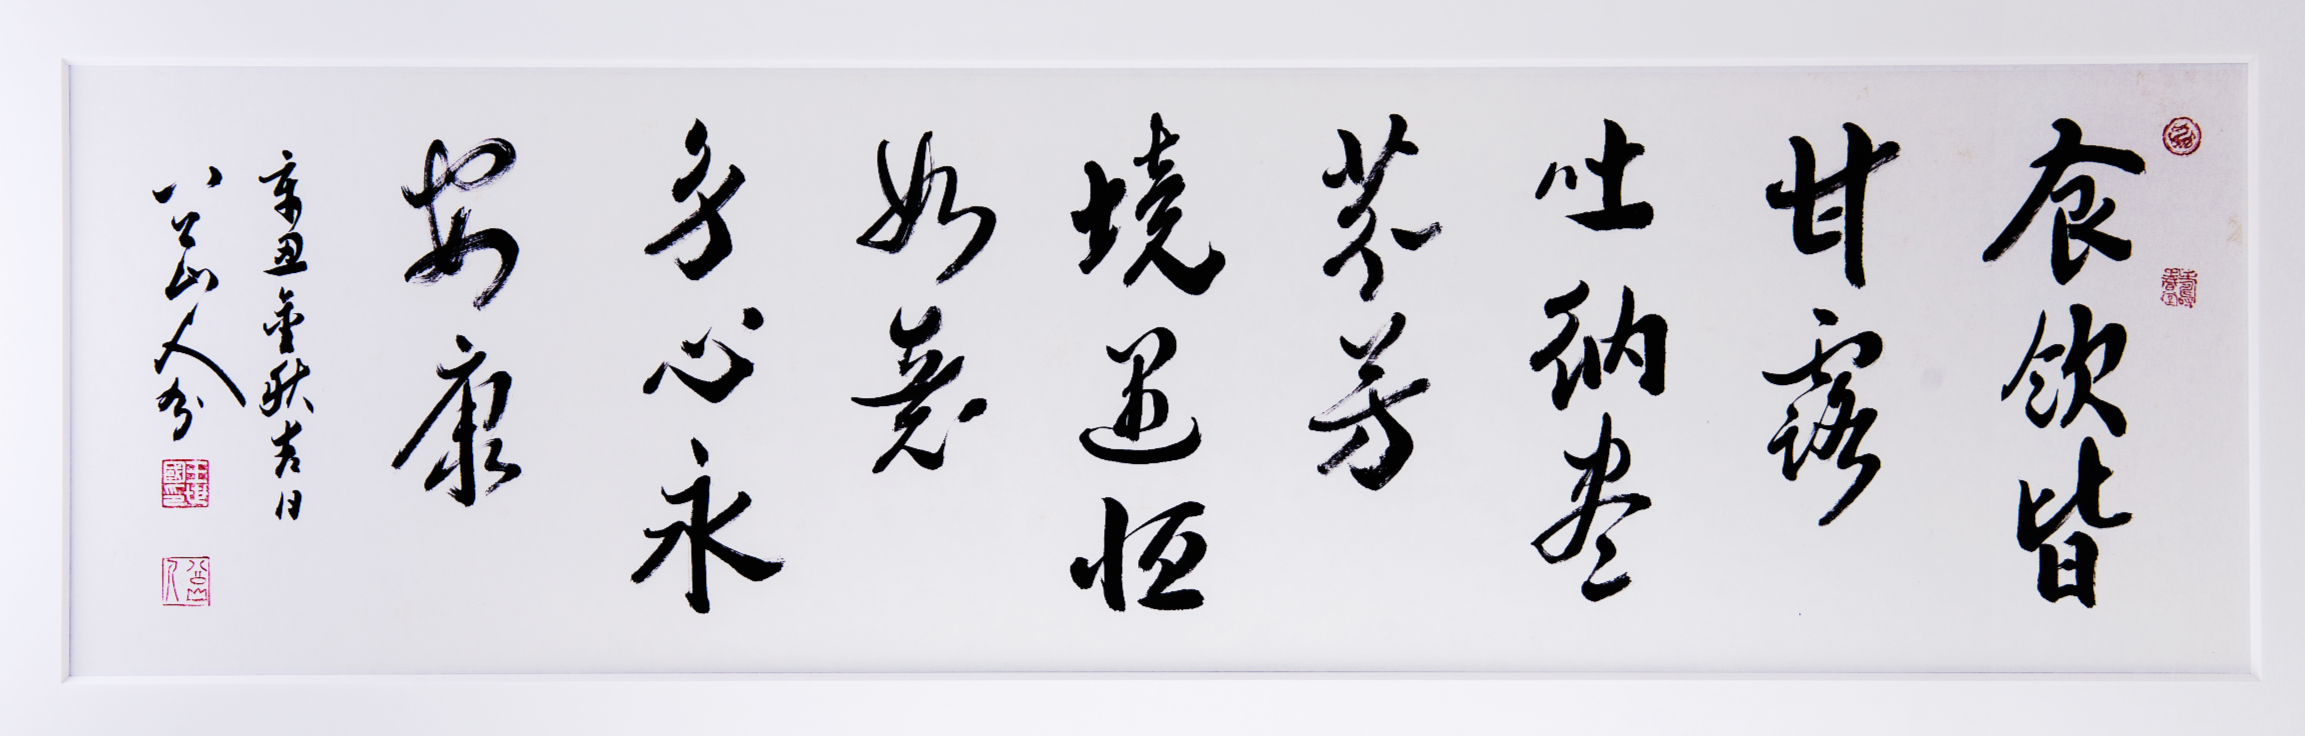 食飲皆
甘露
吐納盡
芬芳
境遇恒
如意
身心永
安康
辛丑金秋吉日
八公山人书